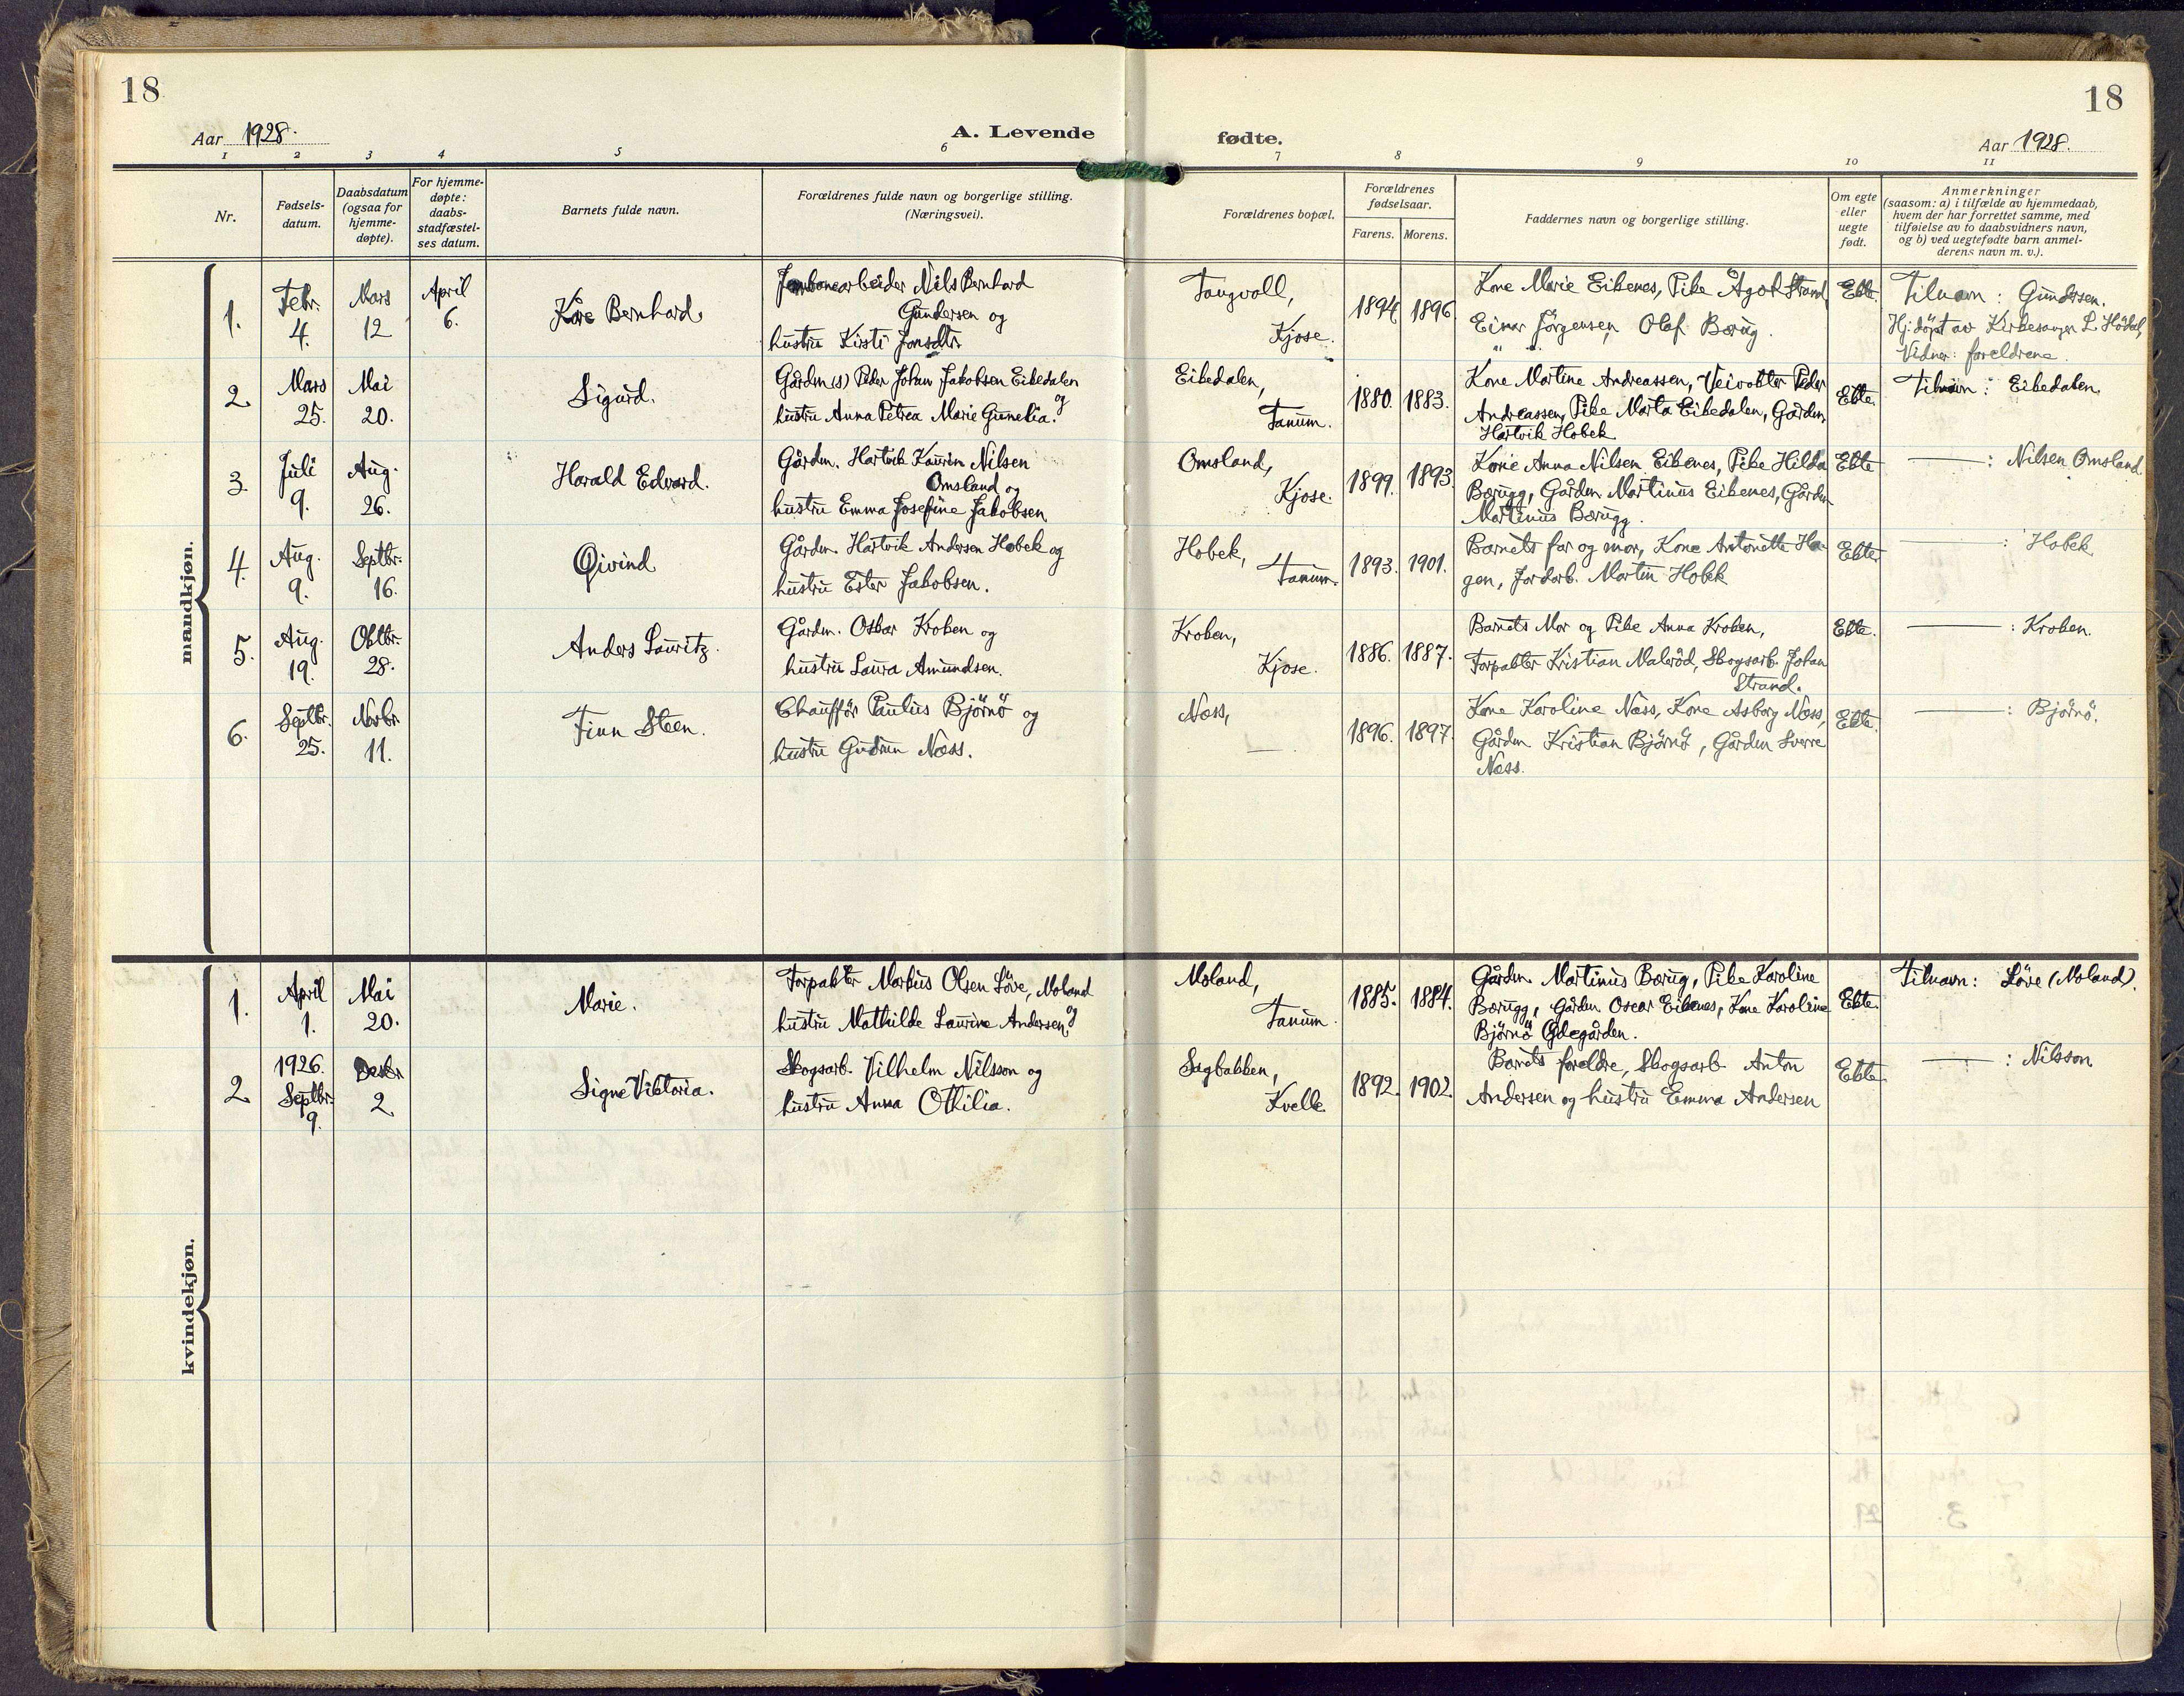 18
Aar 1928.
A. Levende
1 2 3 4 5 6
Nr.
Fødsels-
datum.
Daabsdatum
(ogsaa for
hjemme-
døpte).
For hjemme-
døpte:
daabs-
stadfæstel-
ses datum.
Barnets fulde navn.
Forældrenes fulde navn og borgerlige stilling.
(Næringsvei).
18
fødte.
Aar 1928.
7 8 9 10 11
Forældrenes bopæl.
Forældrenes
fødselsaar.
Farens. Morens.
Faddernes navn og borgerlige stilling.
Om egte
eller
uegte
født.
Anmerkninger
(saasom: a) i tilfælde av hjemmedaab,
hvem der har forrettet samme, med
tilføielse av to daabsvidners navn,
og b) ved uegtefødte barn anmel-
derens navn m. v.).
mandkjøn.
1.
Febr.
4.
Mars
12
April
6.
Kåre Bernhard.
Jernbanearbeider Nils Bernhard
Gundersen og
hustru Kirsti Jonsdtr.
Tangvall,
Kjose.
1894. 1896.
Kone Marie Eikenes, Pike Ågot Strand,
Einar Jörgensen, Olaf Bærug.
Ekte.
Tilnavn: Gundersen.
Hj. döpt av Kirkesanger L. Hödal,
Vidner: foreldrene.
2.
Mars
25.
Mai
20.
Sigurd.
Gårdm(s) Peder Johan Jakobsen Eikedalen
og
hustru Anna Petrea Marie Gunelia.
Eikedalen,
Tanum.
1880. 1883.
Kone Martine Andreassen, Veivokter Peder
Andreassen, Pike Marta Eikedalen, Gårdm.
Hartvik Hobek
Ekte.
Tilnavn: Eikedalen.
3.
Juli
9.
Aug.
26.
Harald Edvard.
Gårdm. Hartvik Kaurin Nilsen
Omsland og
hustru Emma Josefine Jakobsen
Omsland,
Kjose.
1899. 1893.
Kone Anna Nilsen Eikenes, Pike Hilda
Bærugg, Gårdm. Martinius Eikenes, Gårdm
Martinius Bærugg.
Ekte
——: Nilsen Omsland
4.
Aug.
9.
Septbr.
16.
Øivind
Gårdm. Hartvik Andersen Hobek og
hustru Ester Jakobsen.
Hobek,
Tanum.
1893. 1901.
Barnets far og mor, Kone Antonette Ha-
gen, Jordarb. Martin Hobek
Ekte
——: Hobek
5.
Aug.
19.
Oktbr.
28.
Anders Lauritz.
Gårdm. Oskar Kroken og
hustru Laura Amundsen.
Kroken,
Kjose.
1886. 1887.
Barnets Mor og Pike Anna Kroken,
Forpakter Kristian Maleröd, Skogsarb. Johan
Strand.
Ekte.
——: Kroken.
6.
Septbr.
25.
Novbr.
11.
Finn Steen.
Chauffør Paulus Björnö og
hustru Gudrun Næss.
Næss,
—
1896. 1897.
Kone Karoline Næss, Kone Asborg Næss,
Gårdm Kristian Björnö, Gårdm Sverre
Næss.
Ekte
——: Björnö.
kvindekjøn.
1.
April
1.
Mai
20.
Marie.
Forpakter Markus Olsen Löve, Moland
og
hustru Mathilde Laurine Andersen,
Moland,
Tanum.
1885. 1884.
Gårdm. Martinius Bærug, Pike Karoline
Bærugg, Gårdm. Oscar Eikenes, Kone Karoline
Björnö Ödegården.
Ekte.
Tilnavn: Löve (Moland).
2.
1926.
Septbr.
9.
Desbr
2.
Signe Viktoria.
Skogsarb. Vilhelm Nilsson og
hustru Anna Othilia.
Sagbakken,
Kvelle.
1892. 1902.
Barnets foreldre, Skogsarb. Anton
Andersen og hustru Emma Andersen
Ekte.
——: Nilsson